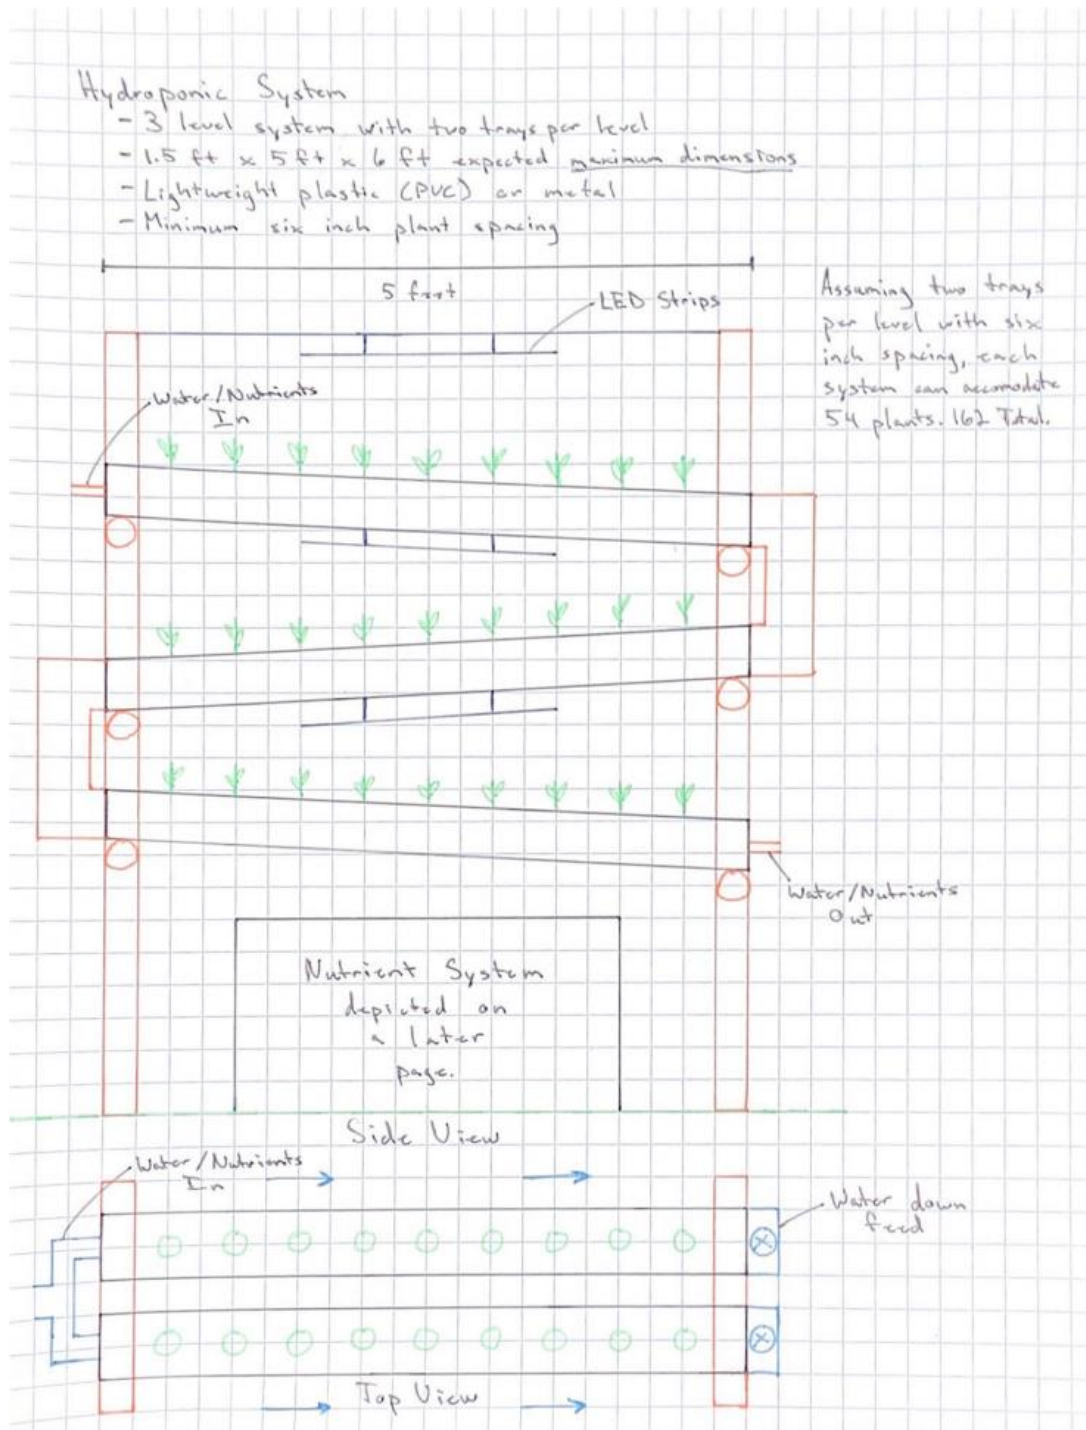 Hydroponic System
- 3 level system with two trays per level
- 1.5 ft x 5 ft x 6 ft expected maximum dimensions
- Lightweight plastic (PVC) or metal
- Minimum six inch plant spacing
5 feet
LED Strips
Assuming two trays
per level with six
inch spacing, each
system can accomodate
54 plants. 162 Total.
Water/Nutrients
In
Water/Nutrients
Out
Nutrient System
depicted on
a later
page.
Side View
Water/Nutrients
In
Water down
feed
Top View